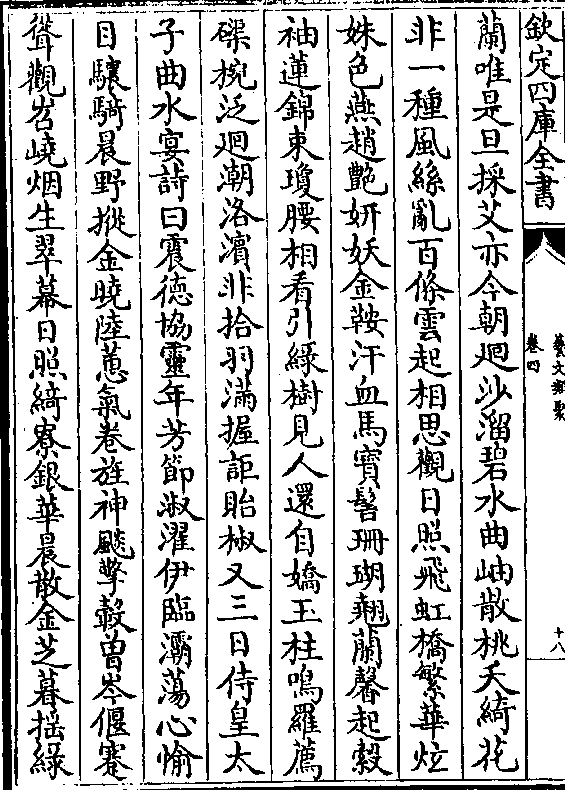 欽定四庫全書
藝文類聚
卷四
十八
蘭唯是旦採艾亦今朝廻沙溜碧水曲岫散桃夭綺花
非一種風絲亂百條雲起相思觀日照飛虹橋繁華炫
姝色燕趙艷妍妖金鞍汗血馬寶髻珊瑚翹蘭馨起縠
袖蓮錦束瓊腰相看引緑樹見人還自嬌玉柱鳴羅薦
磲椀泛廻潮洛濱非拾羽滿握詎貽椒又三日侍皇太
子曲水宴詩曰震德協靈年芳節淑濯伊臨灞蕩心愉
目驤騎晨野摐金曉陸蔥氣卷旌神飈擎轂曾岑偃蹇
聳觀岧嶢烟生翠幕日照綺寮銀華晨散金芝暮摇緑